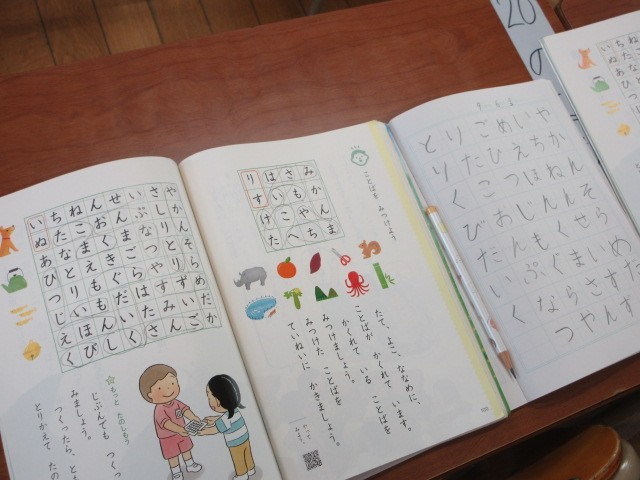 ことばを みつけよう
みかんま
さもやち
はいこへ
りすけた
たて、よこ、ななめに、
ことばが かくれて います。
かくれて いる ことばを
みつけましょう。
みつけた ことばを
ていねいに かきましょう。
やかんそらめだか
さしりとりずいご
いぶなつやすみん
ねこまえももんし
ちたなとりいほび
いぬあひつじえく
もっと たのしもう
じぶんでも つくっ
みましょう。
つくったら、とも
とりかえて たの
やかんそらめだか
いちねんせいすず
めえほんくまさん
ごひつじもぐらや
りたこおんぷなつ
とりくびたいく
20
の